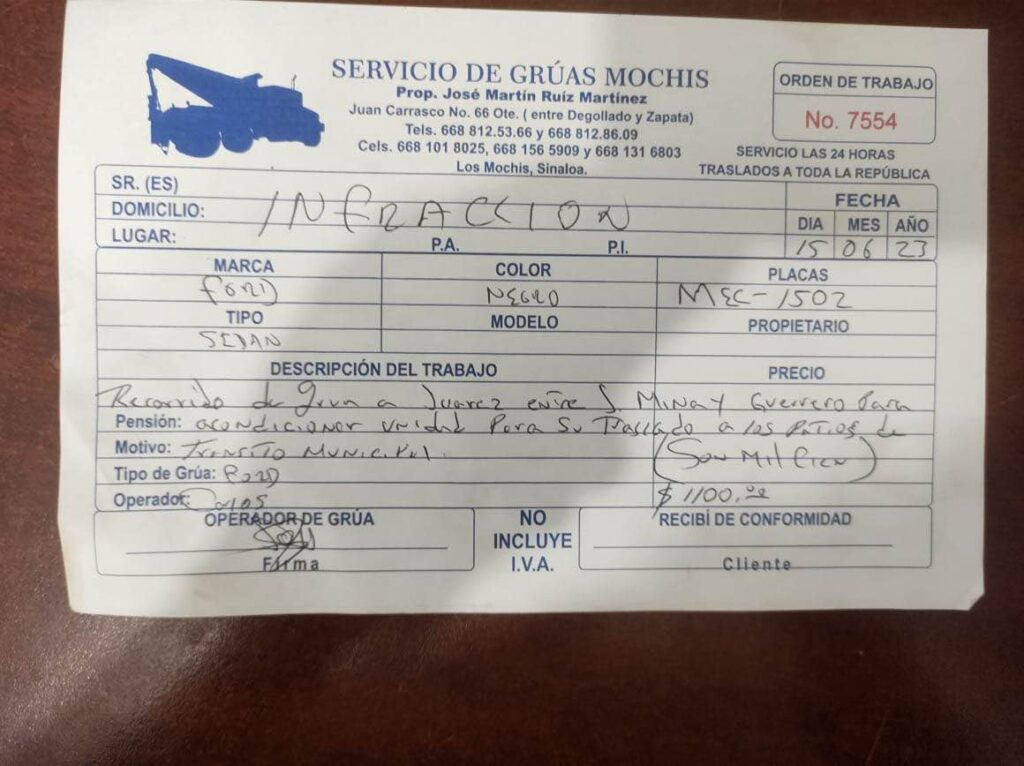 SERVICIO DE GRÚAS MOCHIS
Prop. José Martín Ruíz Martínez
Juan Carrasco No. 66 Ote. ( entre Degollado y Zapata)
Tels. 668 812.53.66 y 668 812.86.09
Cels. 668 101 8025, 668 156 5909 y 668 131 6803
Los Mochis, Sinaloa.
ORDEN DE TRABAJO
No. 7554
SERVICIO LAS 24 HORAS
TRASLADOS A TODA LA REPÚBLICA
SR. (ES)
DOMICILIO: INFRACCION
LUGAR: P.A. P.I.
FECHA
DIA MES AÑO
15 06 23
MARCA COLOR PLACAS
FORD NEGRO MEC-1502
TIPO MODELO PROPIETARIO
SEDAN
DESCRIPCIÓN DEL TRABAJO PRECIO
Recorrido de grua a Juarez entre J. Mina y Guerrero Para
Pensión: acondicionar unidad Para Su Traslado a los Patios de
Motivo: Transito Municipal. (Son Mil Cien)
Tipo de Grúa: FORD
Operador: Carlos $ 1100.00
OPERADOR DE GRÚA
Firma
NO
INCLUYE
I.V.A.
RECIBÍ DE CONFORMIDAD
Cliente